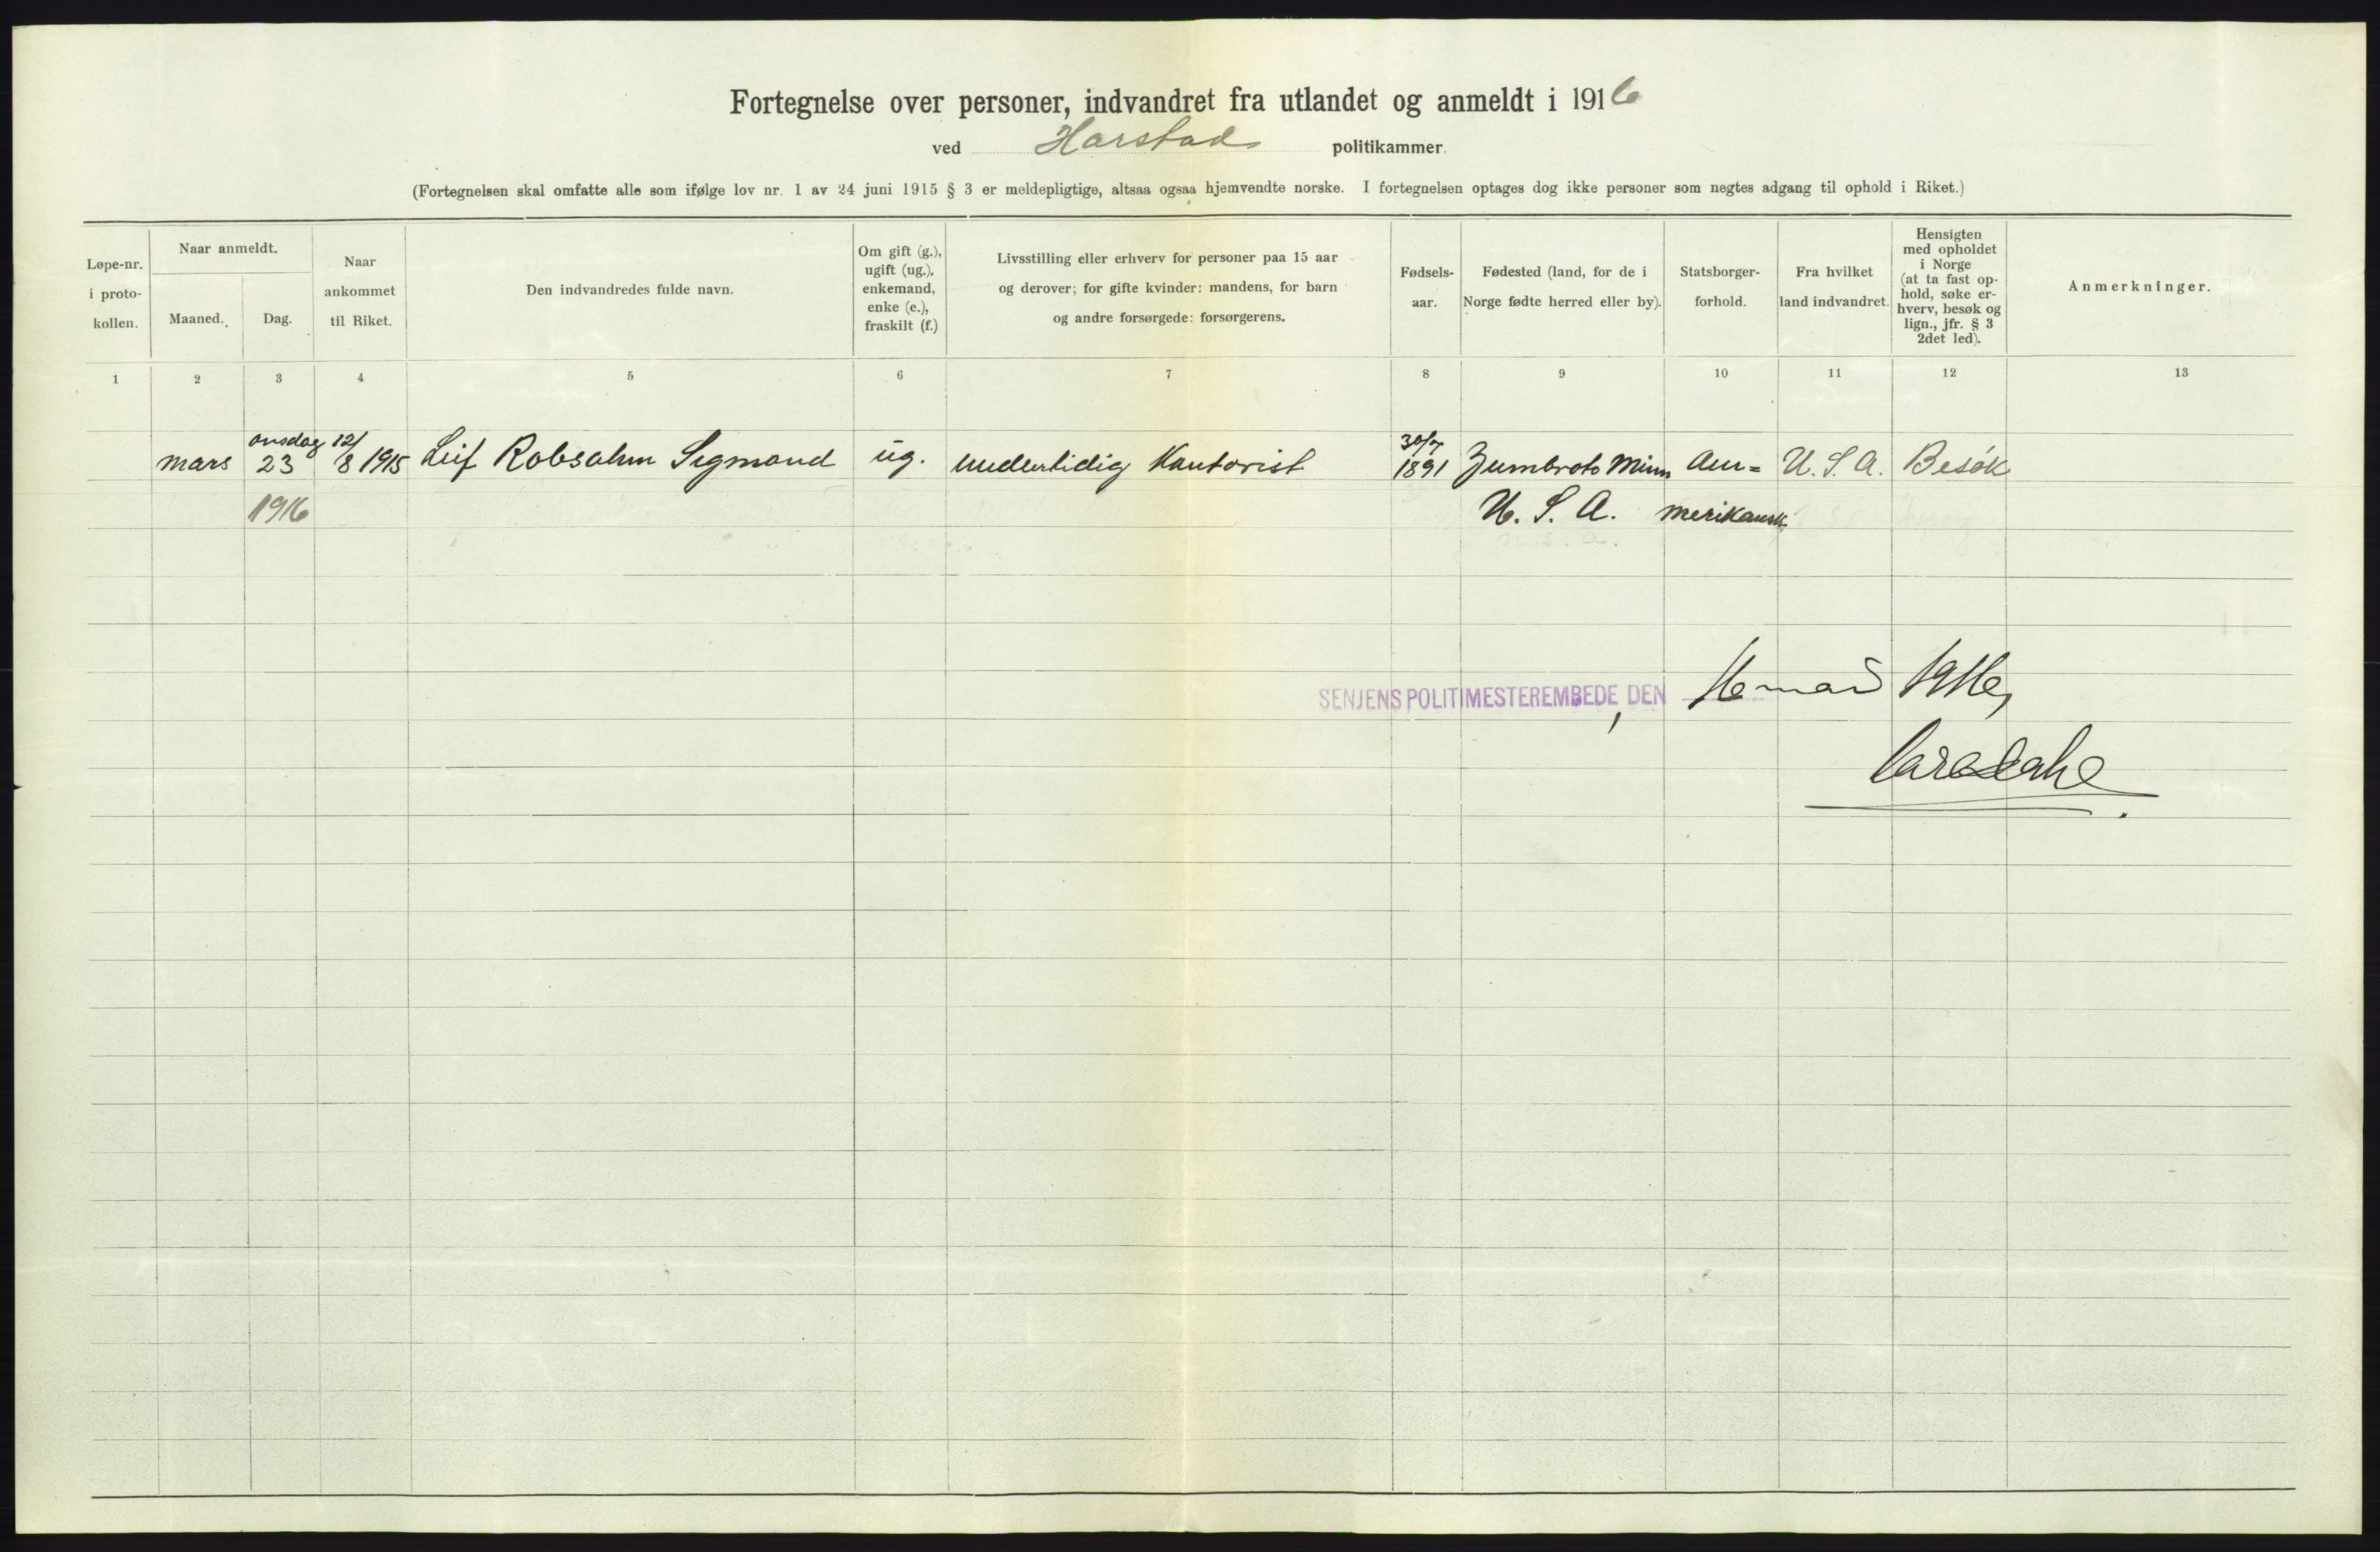 Fortegnelse over personer, indvandret fra utlandet og anmeldt i 1916
ved Harstad politikammer.
(Fortegnelsen skal omfatte alle som ifølge lov nr. 1 av 24 juni 1915 § 3 er meldepligtige, altsaa ogsaa hjemvendte norske. I fortegnelsen optages dog ikke personer som negtes adgang til ophold i Riket.)
Løpe-nr.
i proto-
kollen.
Naar anmeldt.
Maaned.
Dag.
Naar
ankommet
til Riket.
Den indvandredes fulde navn.
Om gift (g.),
ugift (ug.),
enkemand,
enke (e.),
fraskilt (f.)
Livsstilling eller erhverv for personer paa 15 aar
og derover; for gifte kvinder: mandens, for barn
og andre forsørgede: forsørgerens.
Fødsels-
aar.
Fødested (land, for de i
Norge fødte herred eller by).
Statsborger-
forhold.
Fra hvilket
land indvandret.
Hensigten
med opholdet
i Norge
(at ta fast op-
hold, søke er-
hverv, besøk og
lign., jfr. § 3
2det led).
Anmerkninger.
1 2 3 4 5 6 7 8 9 10 11 12 13
onsdag 12/ 30/7
mars 23 8 1915 Leif Robsahm Sigmond ug. midlertidig Kontorist 1891 Zumbroto Minn Am= U.S.A. Besøk
1916 U. S. A. merikansk
SENJENS POLITIMESTEREMBEDE, DEN